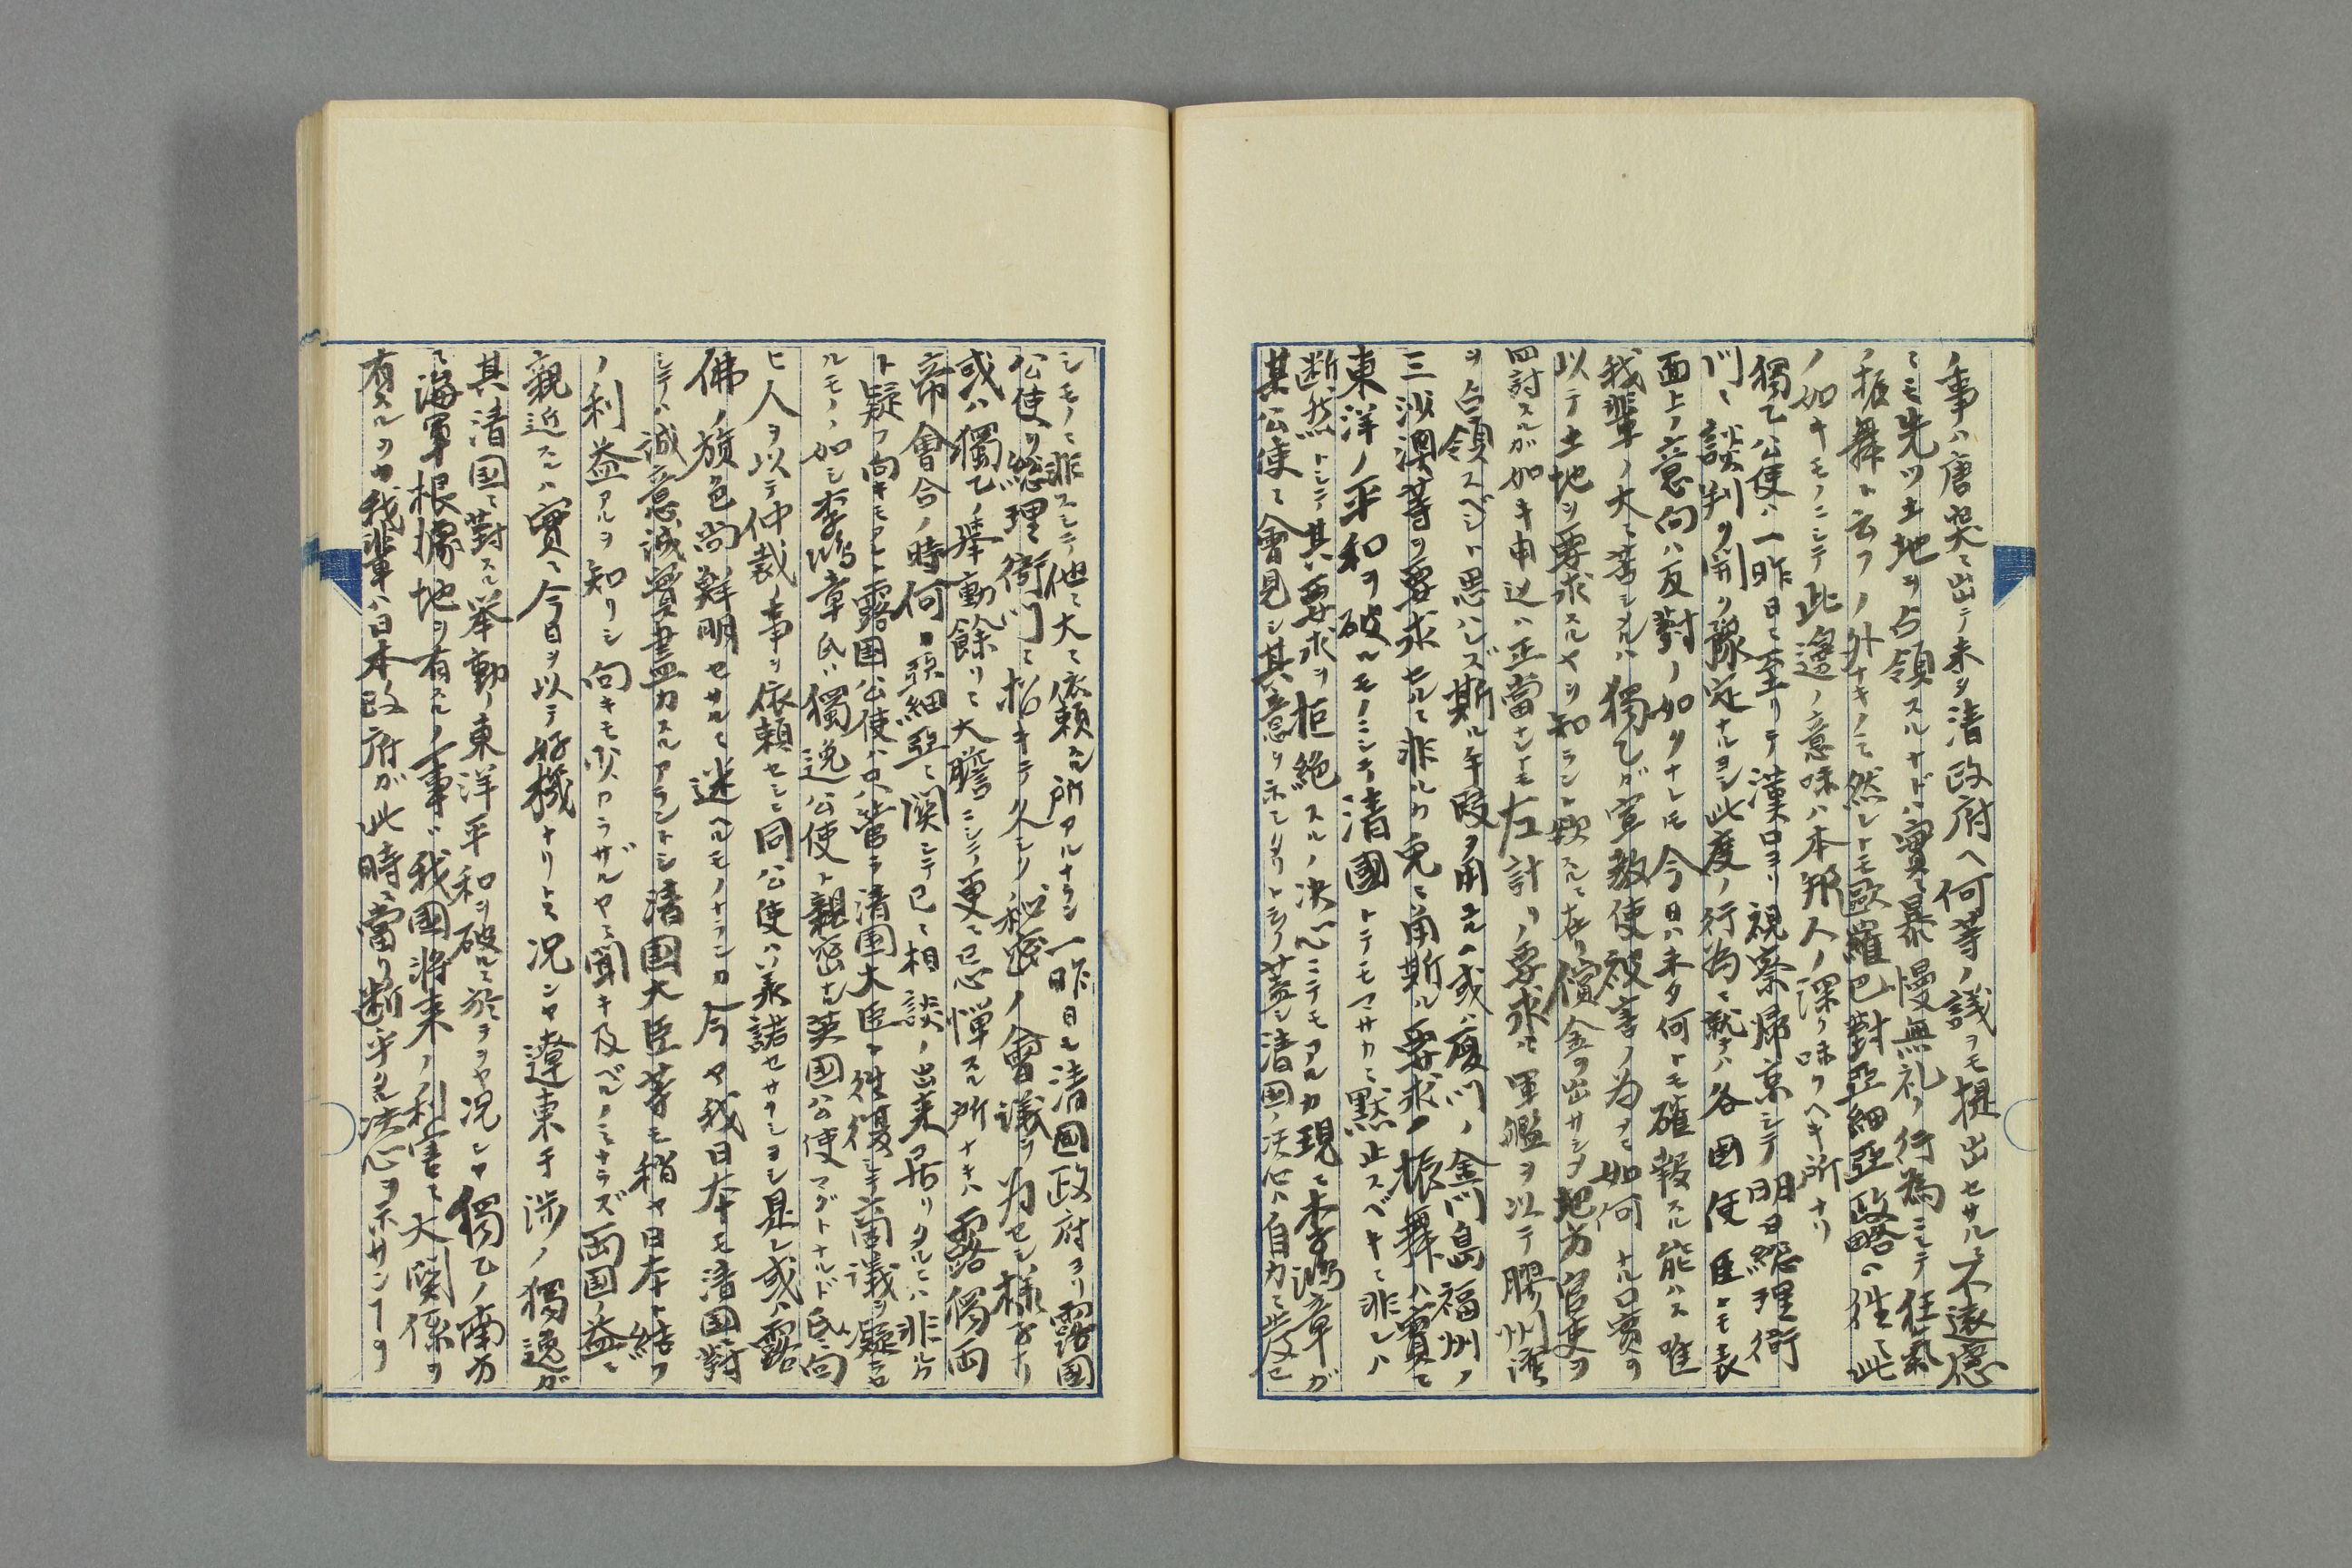 ノ事ハ唐突ニ出テ未タ清政府ヘ何等ノ議ヲモ提出セサル不遠慮
ニモ先ツ土地ヲ占領スルナドハ實ニ暴慢無礼ノ行為ニシテ狂氣
ノ振舞ト云フノ外ナキノミ然レトモ歐羅巴對亞細亞政略ハ往々此
ノ如キモノニシテ此邊ノ意味ハ本邦人ノ深ク味フヘキ所ナリ
獨乙公使ハ一昨日ニ至リテ漢口ヨリ視察帰京シテ明日総理衙
門ニ談判ヲ開ク豫定ナルヨシ此度ノ行為ニ就テハ各国使臣トモ表
面上ノ意向ハ反對ノ如クナレトモ今日ハ未タ何トモ確報スル能ハス唯
我輩ノ大ニ苦シメルハ獨乙ガ宣教使被害ノ為メニ如何ナル口實ヲ
以テ土地ヲ要求スルヤヲ知ラント欲スルニ在リ償金ヲ出サシメ地方官吏ヲ
罰スルガ如キ申込ハ正當ナレトモ左計リノ要求ニ軍艦ヲ以テ膠州湾
ヲ占領スベシト思ハレズ斯ル手段ヲ用ユルハ或ハ厦門ノ金門島福州ノ
三沙澳等ヲ要求セルニ非ルカ兎ニ角斯ル要求ノ振舞ハ實ニ
東洋ノ平和ヲ破ルモノニシテ清國トテモマサカニ黙止スベキニ非レハ
断然トシテ其要求ヲ拒絶スルノ決心ニテモアルカ現ニ李鴻章ガ
某公使ニ會見シ其意ヲ示シタリト云フ蓋シ清国ノ決心ハ自力ニ出セ
シモノニ非スシテ他ニ大ニ依頼スル所アルナラン一昨日モ清国政府ヨリ露国
公使ヲ総理衙門ニ招キテ久シク秘密ノ會議ヲ為セシ様子ナリ
或ハ獨乙ノ挙動餘リニ大膽ニシテ更ニ忌憚スル所ナキハ露獨両
帝會合ノ時何カ亞細亞ニ関シテ已ニ相談ノ出来居リタルニハ非ルカ
ト疑フ向キモアレト露国公使ハ只管ラ清国大臣ト往復シテ商議ヲ凝セ
ルモノノ如シ李鴻章氏ハ獨逸公使ト親密ナル英国公使マグドナルド氏ニ向
ヒ人ヲ以テ仲裁ノ事ヲ依頼セシニ同公使ハ承諾セサリシヨシ是レ或ハ露
佛ノ旗色尚鮮明セサルニ迷ヘルモノナランカ今ヤ我日本モ清国ニ對
シテハ誠意誠實盡力スルアラントシ清国大臣等モ稍ヤ日本ト結フ
ノ利益アルヲ知リシ向キモ少カラザルヤニ聞キ及ベルノミナラズ両国ノ益々
親近スルハ實ニ今日ヲ以テ好機ナリトス况ンヤ遼東干渉ノ獨逸ガ
其清国ニ對スル挙動ノ東洋平和ヲ破ルニ於テヲヤ况ンヤ獨乙ノ南方
ニ海軍根據地ヲ有スルノ一事ハ我國将来ノ利害ニ大関係ヲ
有スルヲヤ我輩ハ日本政府ガ此時ニ當リ断乎タル決心ヲ示サンヿヲ